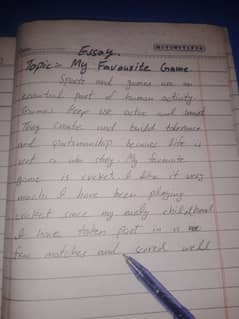 Essay.
Topic:- My Favourite Game
Sports and games are an
essential part of human activity
Games keep us active and smart
They create and build tolerance
and sportsmanship because life is
not a
game is cricket I like it very
much. I have been playing
cricket since my early childhood
I have taken part in a
few matches and scored well